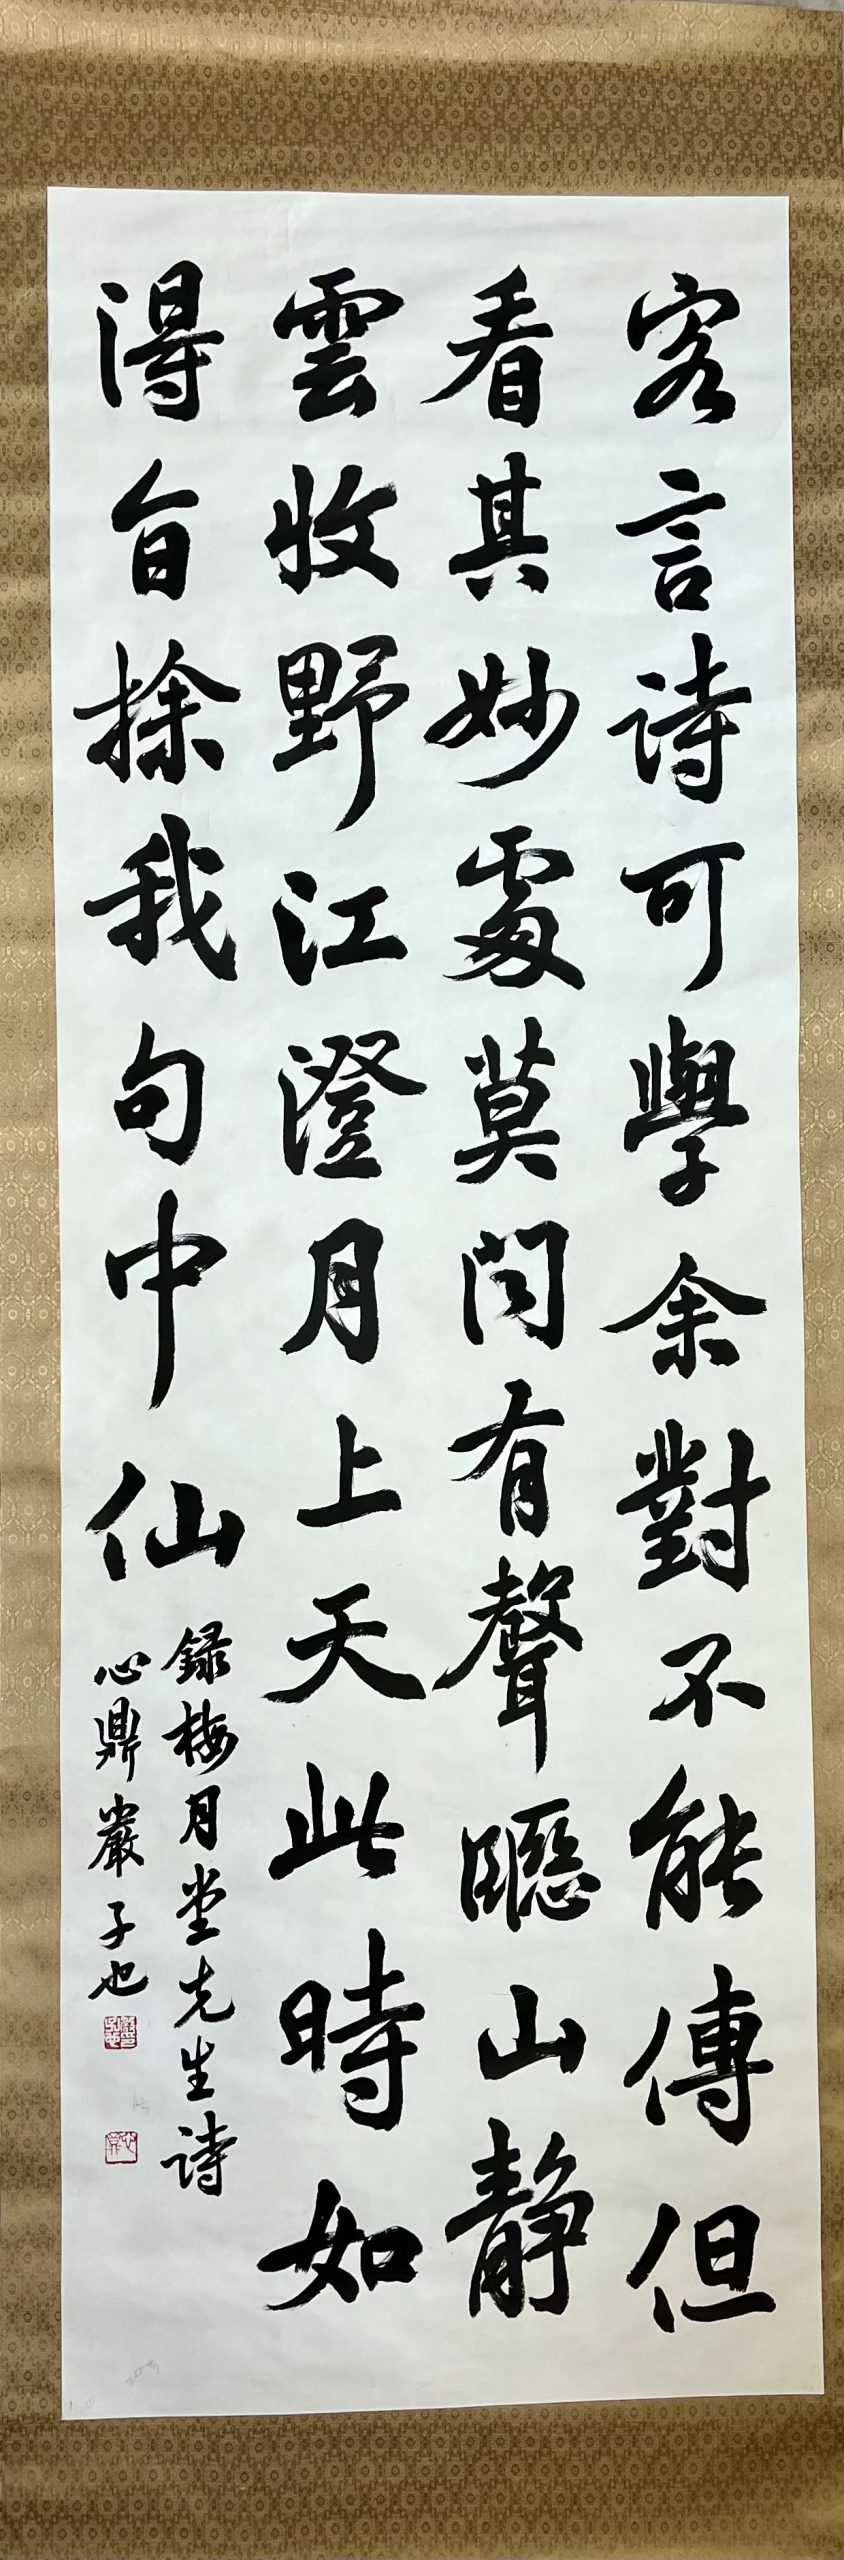 客言詩可學余對不能傳但
看其妙處莫問有聲聰山靜
雲收野江澄月上天此時如
得旨探我句中仙
錄梅月堂先生詩
心鼎嚴子也